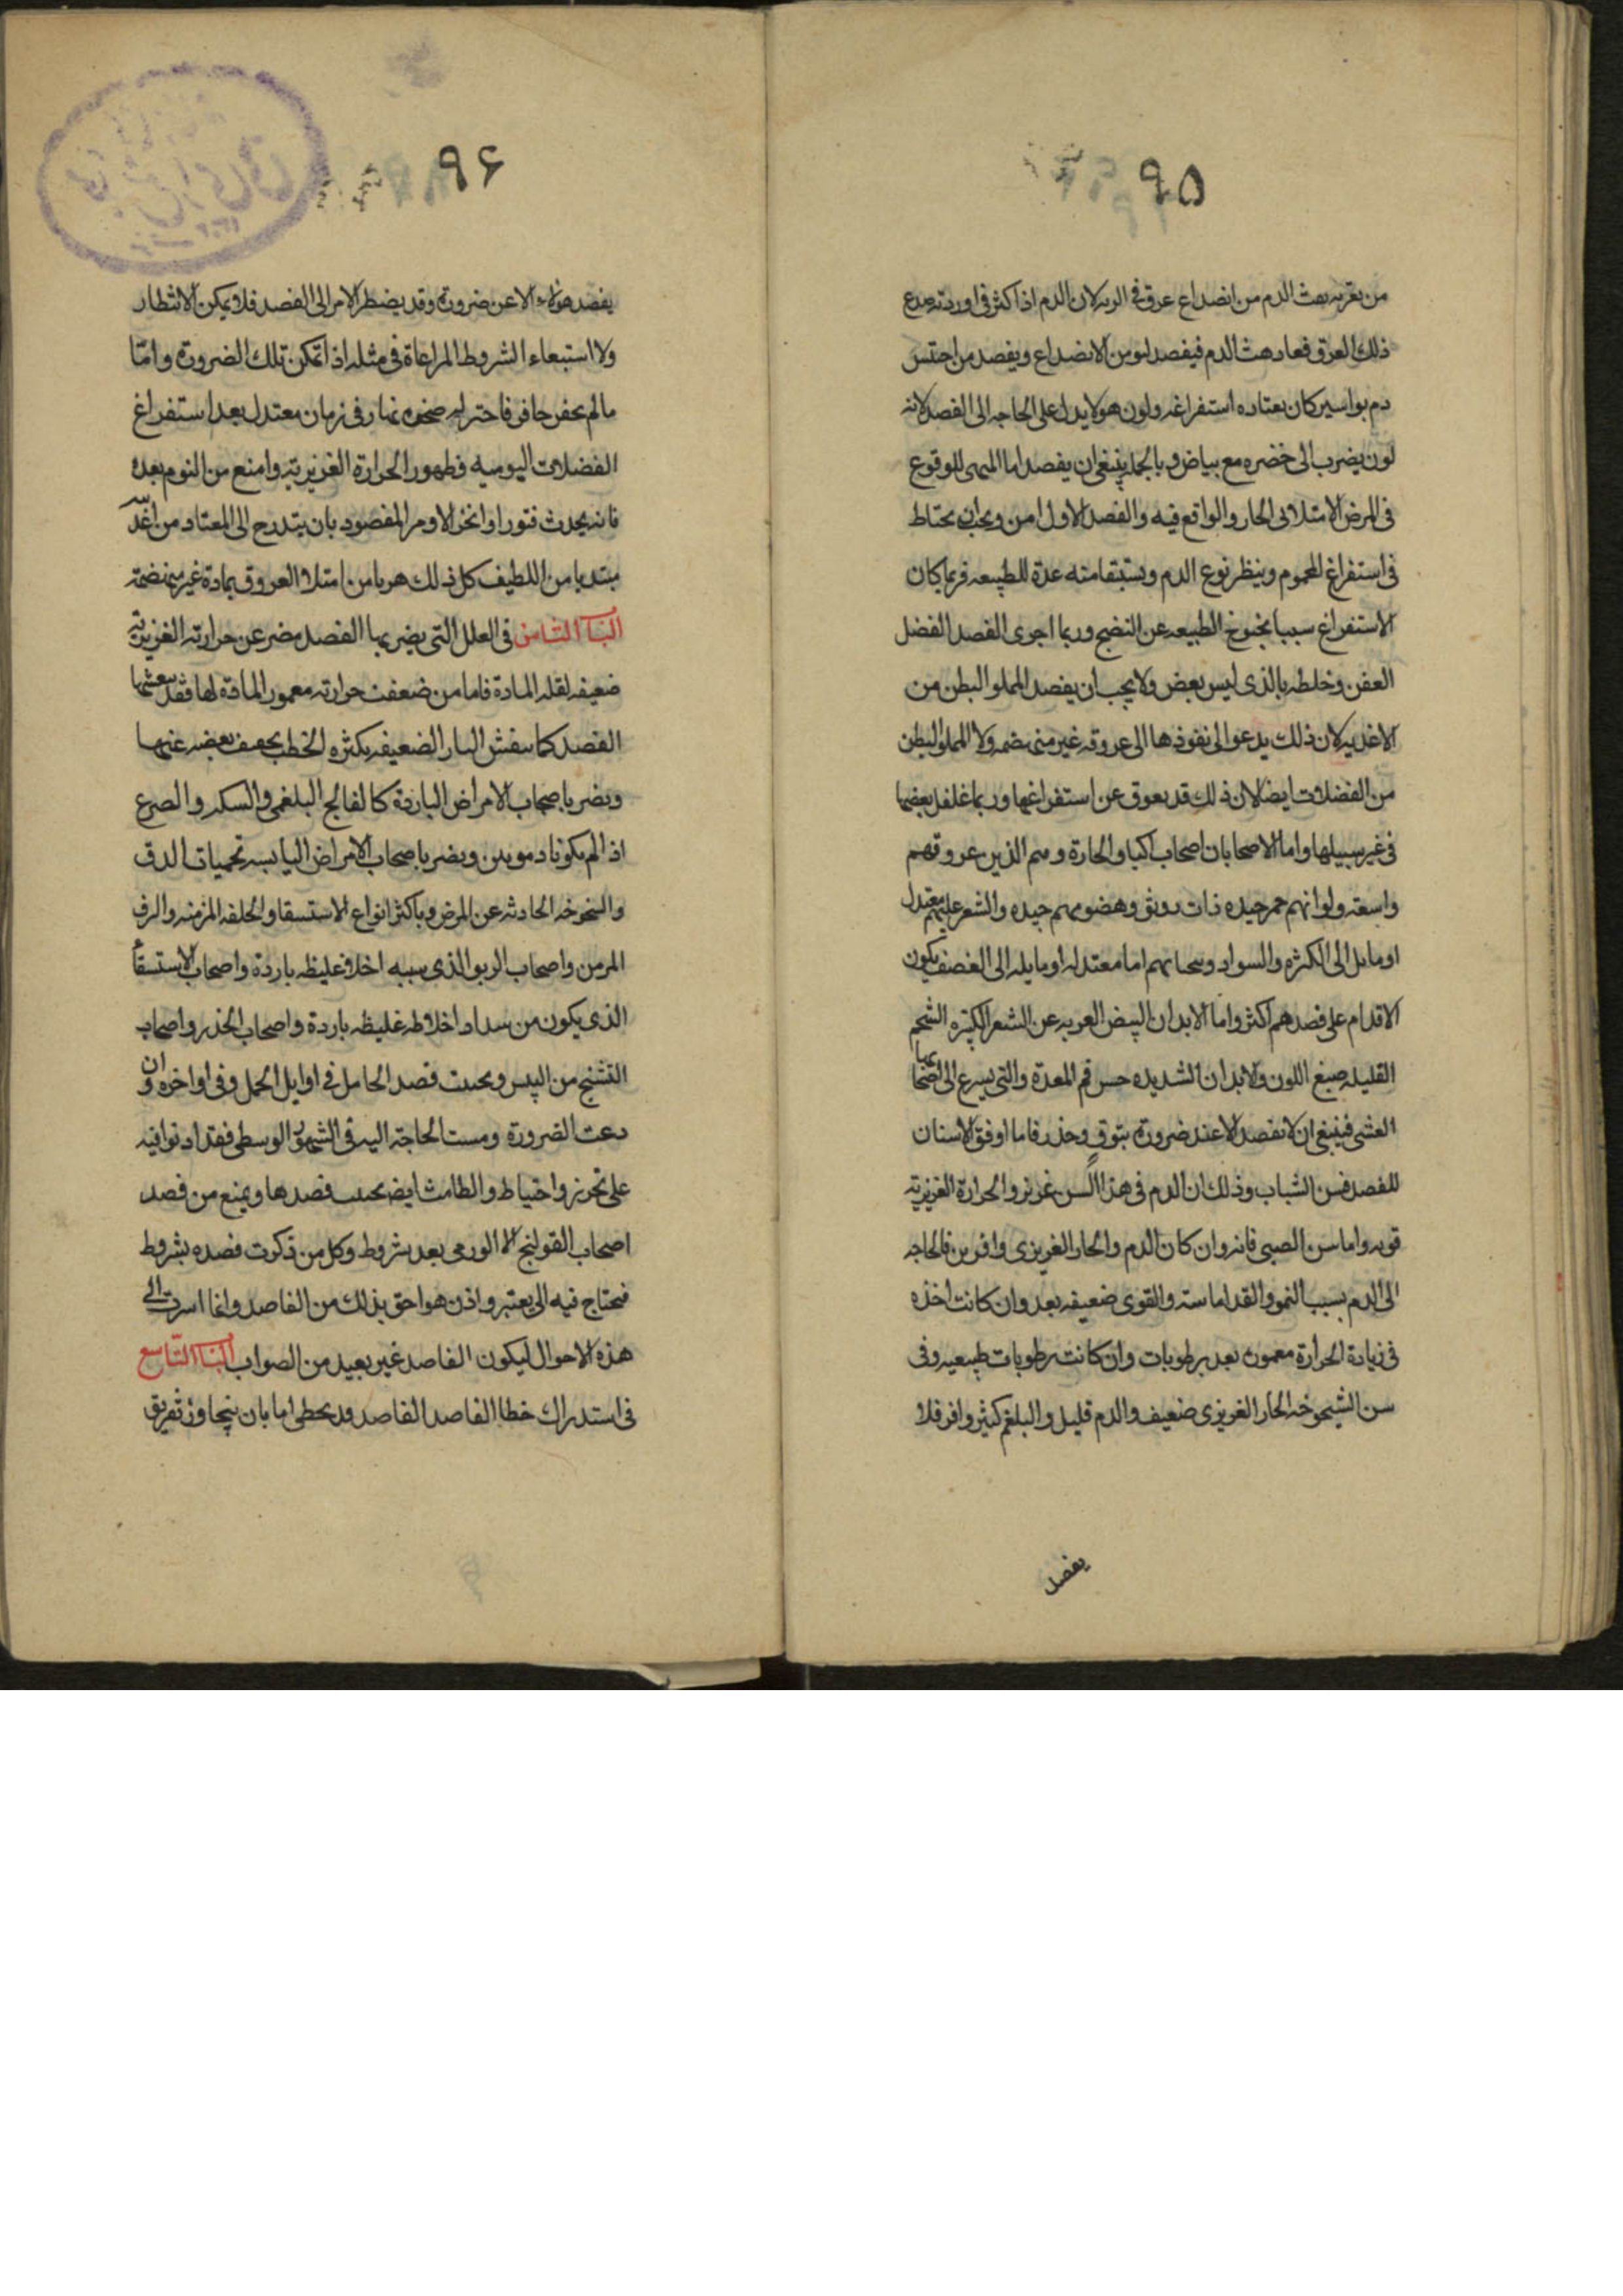 ٩٥
من يعتريه نفث الدم من انصداع عرق في الريه لان الدم اذا كثر في اوردته صدع
ذلك العرق فعاد نفث الدم فيفصد ليومن الانصداع ويفصد من احتبس
دم بواسير كان يعتاده استفراغه ولون هولا يدل على الحاجه الى الفصد لانه
لون يضرب الى خضره مع بياض وبالجمله ينبغي ان يفصد اما المتهيى للوقوع
في المرض الامتلائى الحار والواقع فيه والفصد الاول امن ويجب ان يحتاط
في استفراغ المحموم وينظر نوع الدم ويستبقا منه عدة للطبيعه فربما كان
الاستفراغ سببا لخوخ الطبيعه عن النضج وربما اجرى الفصد الفضل
العفن وخلطه بالذى ليس بعض ولا يجب ان يفصد المملو البطن من
الاغذيه لان ذلك يدعو الى نفوذها الى عروقه غير منهضمه ولا المملو البطن
من الفضلات ايضا لان ذلك قد يعوق عن استفراغها وربما غلغل بعضها
في غير سبيلها واما الاصحا بان اصحاب اكباد الحارة وهم الذين عروقهم
واسعة والوانهم حمر جيده ذات رونق وهضومهم جيده والشعر عليهم معتدل
او مايل الى الكثره والسواد وسحناتهم اما معتدله او مايله الى الغضف يكون
الاقدام على فصدهم اكثر واما الابدان البيض العريه عن الشعر الكثيره الشحم
القليله صبغ اللون والابدان الشديده حس فم المعدة والتى يسرع الى اصحابها
الغشى فينبغي ان لا تفصد الا عند ضرورة بتوق وحذر فاما اوفق الاسنان
للفصد فسن الشباب وذلك ان الدم في هذا السن غزير والحرارة الغريزية
قويه واما سن الصبى فانه وان كان الدم والحار الغريزى وافرين فالحاجه
الى الدم بسبب النمو والقد اماسته والقوى ضعيفه بعد وان كانت اخذه
في زيادة الحرارة مغمورة بعد برطوبات وان كانت رطوبات طبيعيه وفي
سن الشيخوخه الحار الغريزى ضعيف والدم قليل والبلغم كثير وافر فلا
يفصد
٩۶
يفصد هولاء الا عن ضرورة وقد يضطر الامر الى الفصد فلا يمكن الانتظار
ولا استيعاء الشروط المراعاة في مثله اذا تمكن تلك الضرورة وامّا
ما لم يحفز حافز فاختر له ضحوه نهار في زمان معتدل بعد استفراغ
الفضلات اليوميه وظهور الحرارة الغريزية وامنع من النوم بعده
فانه يحدث فتورا وانخزالا ومر المفصود بان يتدرج الى المعتاد من اغذيته
مبتديا من اللطيف كل ذلك هربا من امتلا العروق بمادة غير منهضمة
الباب الثامن في العلل التى يضر بها الفصد مضر عن حرارته الغزيزية
ضعيفه لقله المادة فاما من ضعفت حرارته معمور المادة لها فقد ينعشها
الفصد كما ينعش النار الضعيفه بكثره الحطب تخفيف بعضه عنها
ويضر باصحاب الامراض الباردة كالفالج البلغمى والسكته والصرع
اذا لم يكونا دمويين ويضر باصحاب الامراض اليابسه كحميات الدق
والشيخوخه الحادثه عن المرض وباكثر انواع الاستسقا والخلفه المزمنه والرب
المزمن واصحاب الربو الذى سببه اخلاط غليظه باردة واصحاب الاستسقأ
الذى يكون من سداد اخلاطه غليظه باردة واصحاب الخدر واصحاب
التشنج من اليبس ويجتنب فصد الحامل في اوايل الحمل وفي اواخره وان
دعت الضرورة ومست الحاجة اليه في الشهور الوسطى فقد اذنوا فيه
على تحرز واحتياط والطامث ايضا يجتنب فصدها ويمنع من فصد
اصحاب القولنج الا الورمى بعد شروط وكل من ذكرت فصده بشروط
فيحتاج فيه الى معتبر واذن هو احق بذلك من الفاصد وانما اسردت الى
هذه الاحوال ليكون الفاصد غير بعيد من الصواب الباب التّاسع
في استدراك خطا الفاصد الفاصد قد يخطى اما بان يتجاوز تفريق